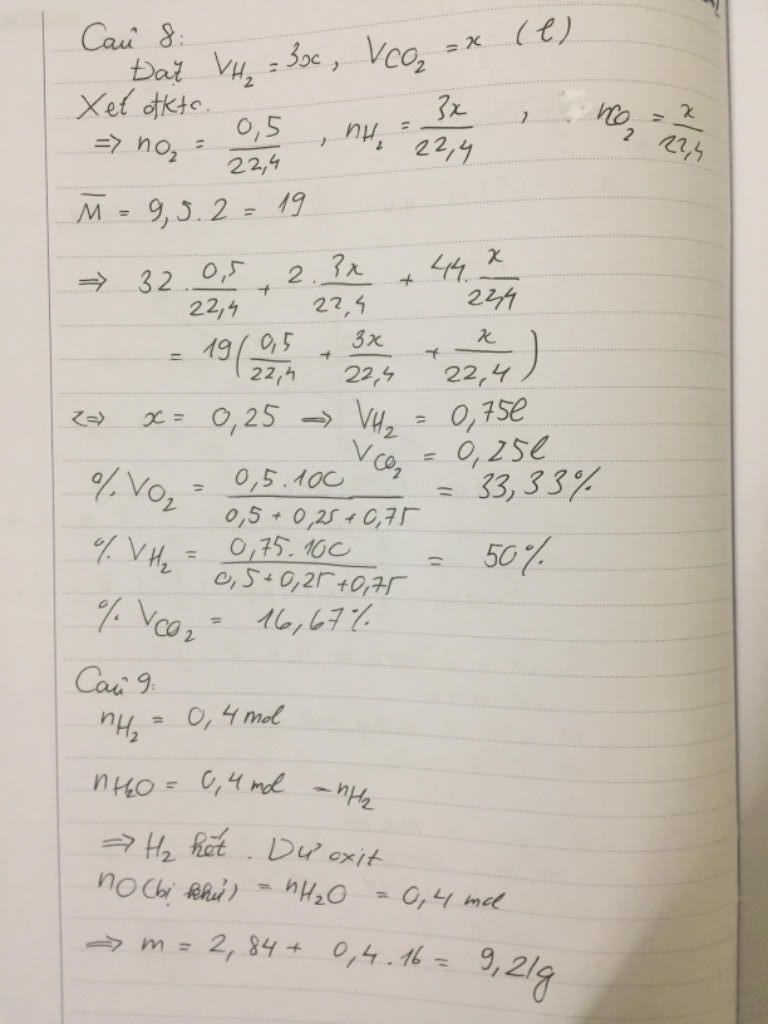 Câu 8:
Đặt V_H₂ = 3x, V_CO₂ = x (l)
Xét đktc.
=> nO₂ = 0,5/22,4 , nH₂ = 3x/22,4 , nCO₂ = x/22,4
M̅ = 9,5.2 = 19
=> 32.0,5/22,4 + 2.3x/22,4 + 44.x/22,4
= 19(0,5/22,4 + 3x/22,4 + x/22,4)
<=> x = 0,25 => V_H₂ = 0,75l
V_CO₂ = 0,25l
% V_O₂ = 0,5.100/(0,5 + 0,25 + 0,75) = 33,33%
% V_H₂ = 0,75.100/(0,5 + 0,25 + 0,75) = 50%
% V_CO₂ = 16,67%
Câu 9:
nH₂ = 0,4 mol
nH₂O = 0,4 mol = nH₂
=> H₂ hết. Dư oxit
nO(bị khử) = nH₂O = 0,4 mol
=> m = 2,84 + 0,4.16 = 9,21g